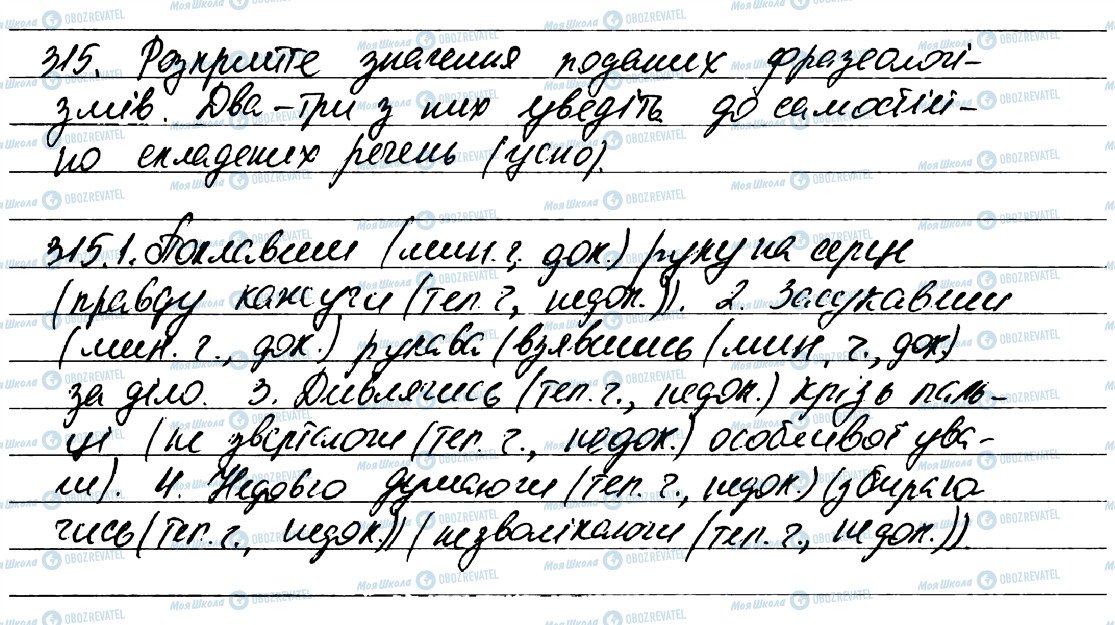 315. Розкрийте значення поданих фразеологі-
змів. Два-три з них уведіть до самостій-
но складених речень (усно).
315.1. Поклавши (мин. ч., док.) руку на серце
(правду кажучи (теп. ч., недок.)). 2. Засукавши
(мин. ч., док.) рукава (взявшись (мин. ч., док.)
за діло. 3. Дивлячись (теп. ч., недок.) крізь паль-
ці (не звертаючи (теп. ч., недок.) особливої ува-
ги). 4. Недовго думаючи (теп. ч., недок.)
чись (теп. ч., недок.)) (не зволікаючи (теп. ч., недок.)).